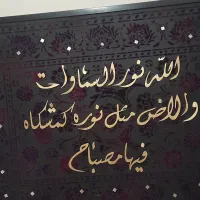 الله نور السماوات
والارض مثل نوره كمشكاه
فيها مصباح